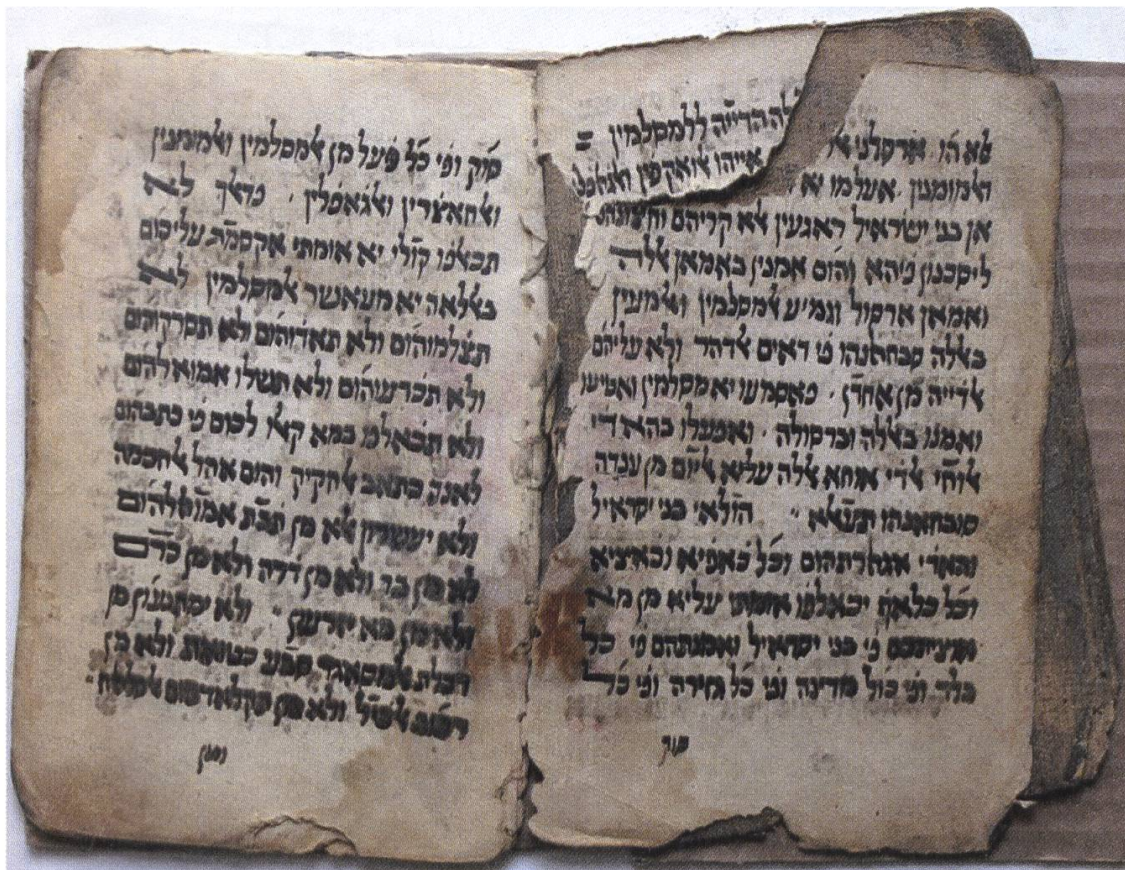 אלה הדייה ללמסלמין
אלא הו ארסלני
ואמומנין אעלמו יא אייהו אואקפין
אן בני ישראיל ראגעין אלא קריהם וחצונהם
ליסכנון פיהא והום אמנין באמאן אלה
ואמאן ארסול וגמיע אמסלמין ואמעין
באלה סבחאנהו פי דאים אדהר ולא עליהם
אדייה מן אחדן פאסמעו יא מסלמין ואטיעו
ואמנו באלה וברסולה ואפעלו בהאדי
אוחי אדי אוחא אלה עליא איום מן ענדה
סובחאנהו תעאלא הולאי בני יסראיל
והאדי אגהרתהום וכל כאפיא וכאיציא
וכל כלאק יכאלפו אומתי עליא מן מא
וציתכם פי בני יסראיל ואמנתהם פי כל
בלד ופי כול מדינה ופי כל גזירה ופי כל
סוק
סוק ופי כל פעל מן אמסלמין ואמומנין
ואחאצרין ואגאפלין כדאך לא
תכאלפו קולי יא אומתי אקסמת עליכום
באלאה יא מעאשר אמסלמין לא
תצלמוהום ולא תאדוהום ולא תסרקוהום
ולא תכדעוהום ולא תנשלו אמואלהום
ולא תכאלפו במא קאלו לכום פי כתבהום
לאנה כתאב אחקיק והום אהל אחכמה
ולא יעשרון לא מן תחת אמואלהום
לא מן בר ולא מן דרה ולא מן כרם
ולא מן מא יזרעון ולא ימתנעון מן
דכלת אמסאגד סבע כטואת ולא מן
רכוב אכיל ולא מן תקלאד סום אסלאח
ומן